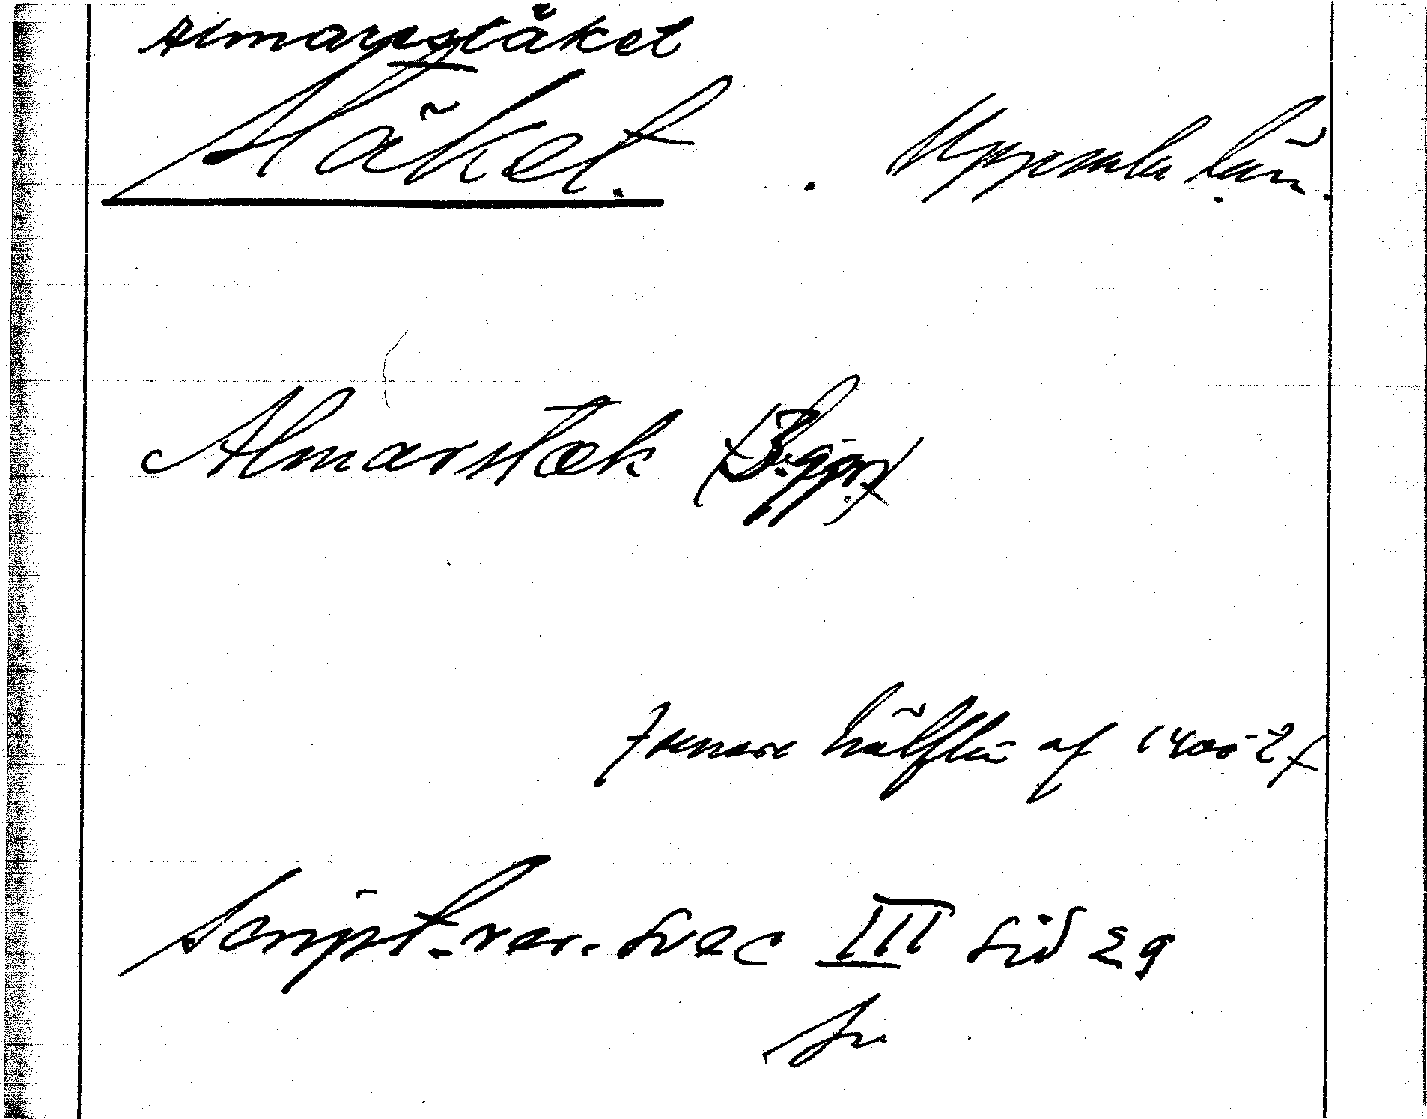 Almarestäket
Stäket. . Uppsala län.
Almarstæk (3 ggr)
senare hälften af 1400 t
Script. rer. svec III sid 29